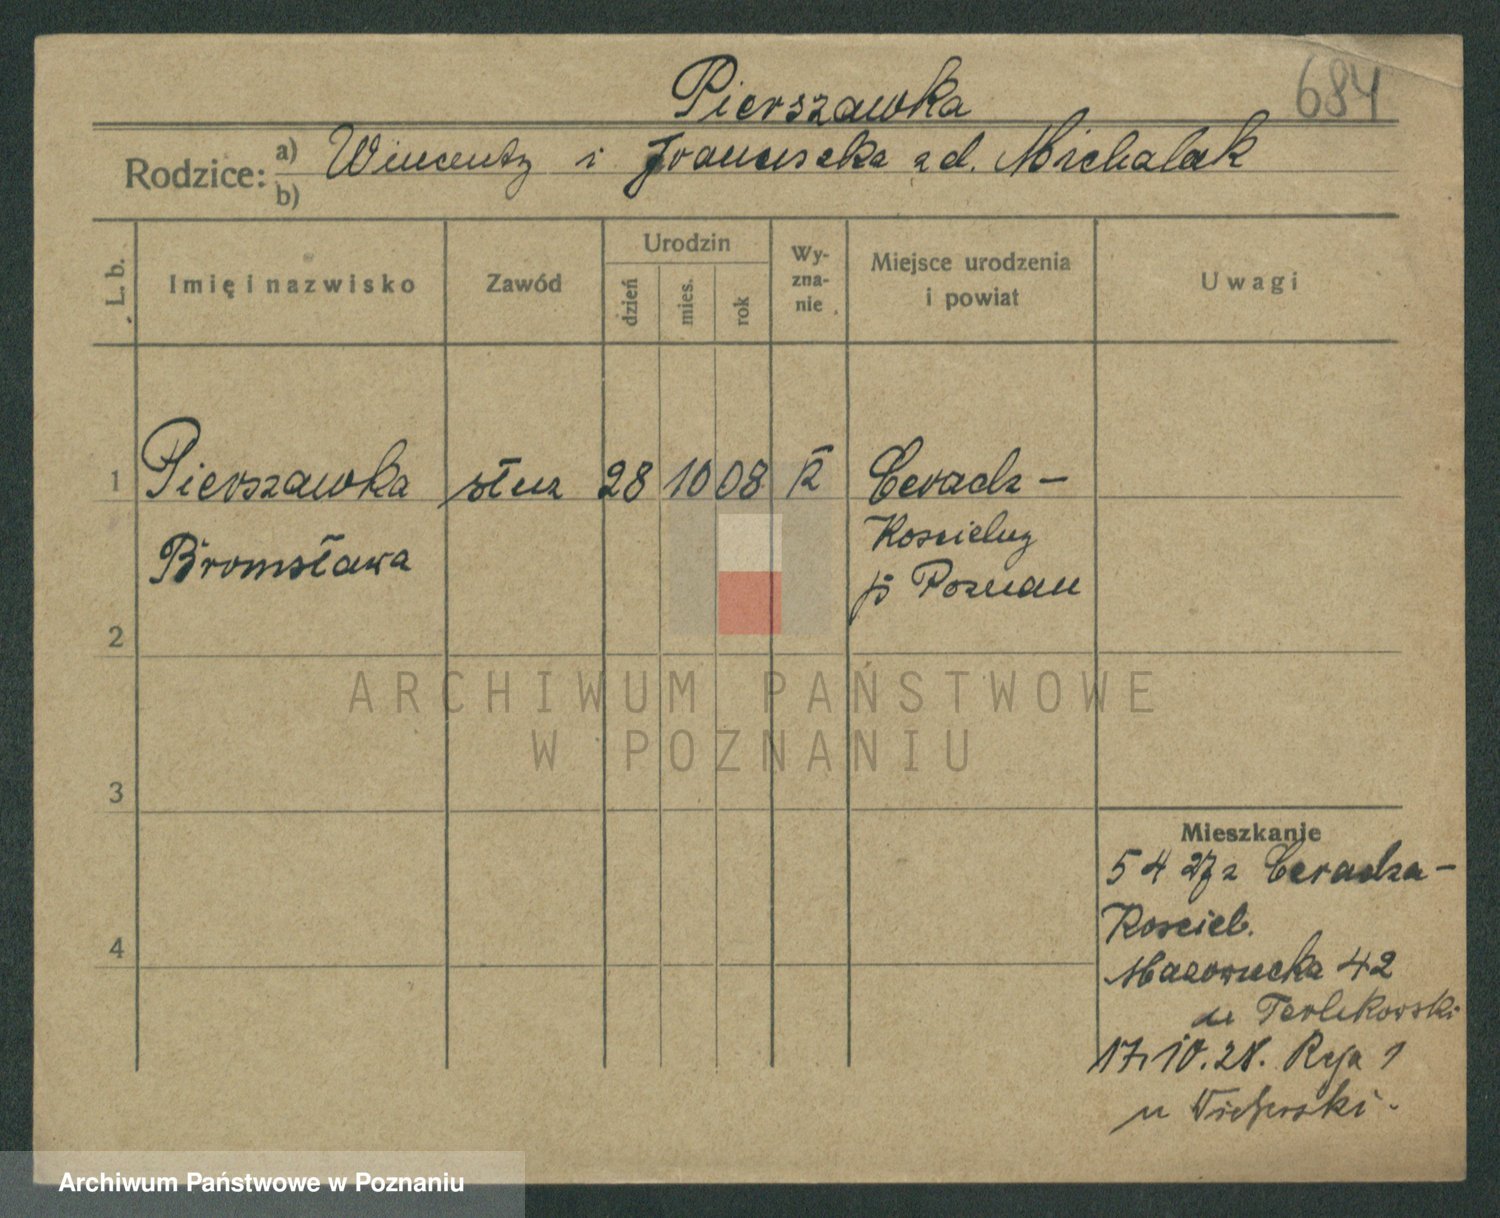 684
Pierszawka
Rodzice: a) Wincenty i Franciszka zd. Michalak
b)
L. b. Imię i nazwisko Zawód Urodzin dzień mies. rok Wyznanie Miejsce urodzenia i powiat Uwagi
1 Pierszawka służ 28 10 08 k Ceradz –
Bronisława Kościelny
p Poznań
2
ARCHIWUM PAŃSTWOWE
W POZNANIU
3
Mieszkanie
5 4 27 z Ceradza –
Kościel.
4
Mazowiecka 42
Terlikowski
17.10.28. Reja 1
u
Archiwum Państwowe w Poznaniu